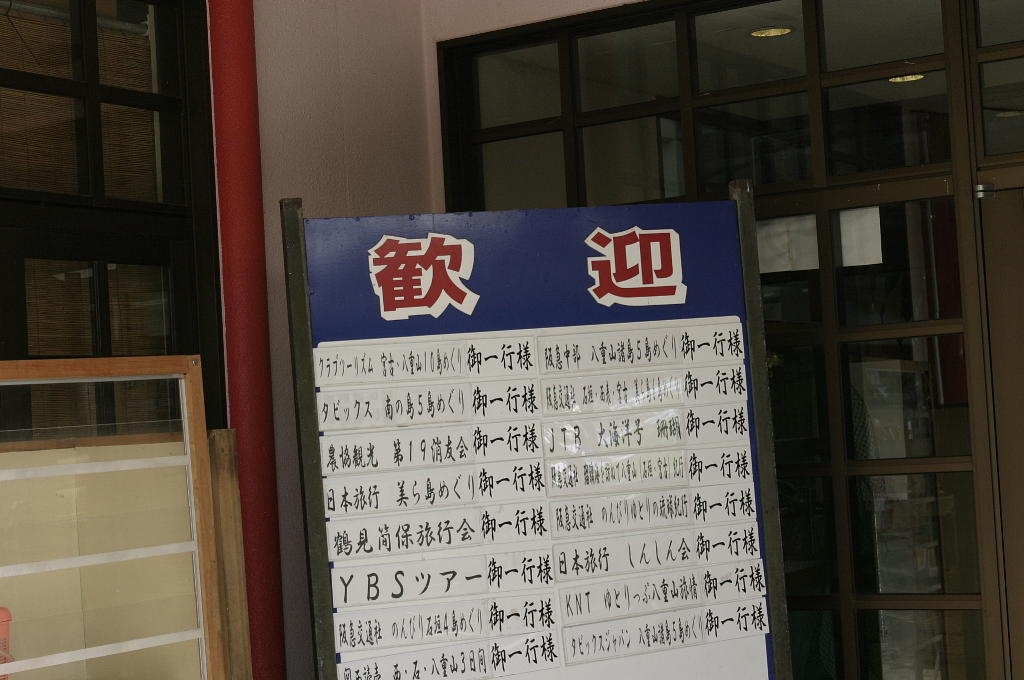 歓迎
クラブツーリズム 宮古・八重山10島めぐり 御一行様
タビックス 南の島5島めぐり 御一行様
農協観光 第19消友会 御一行様
日本旅行 美ら島めぐり 御一行様
鶴見簡保旅行会 御一行様
YBSツアー 御一行様
阪急交通社 のんびり石垣4島めぐり 御一行様
西・石・八重山3日間 御一行様
阪急中部 八重山諸島5島めぐり 御一行様
阪急交通社 石垣・西表・宮古 御一行様
JTB 大海洋号 珊瑚 御一行様
阪急交通社 御一行様
阪急交通社 のんびりゆとりの琉球紀行 御一行様
日本旅行 しんしん会 御一行様
KNT ゆとりっぷ八重山旅情 御一行様
タビックスジャパン 八重山諸島5島めぐり 御一行様